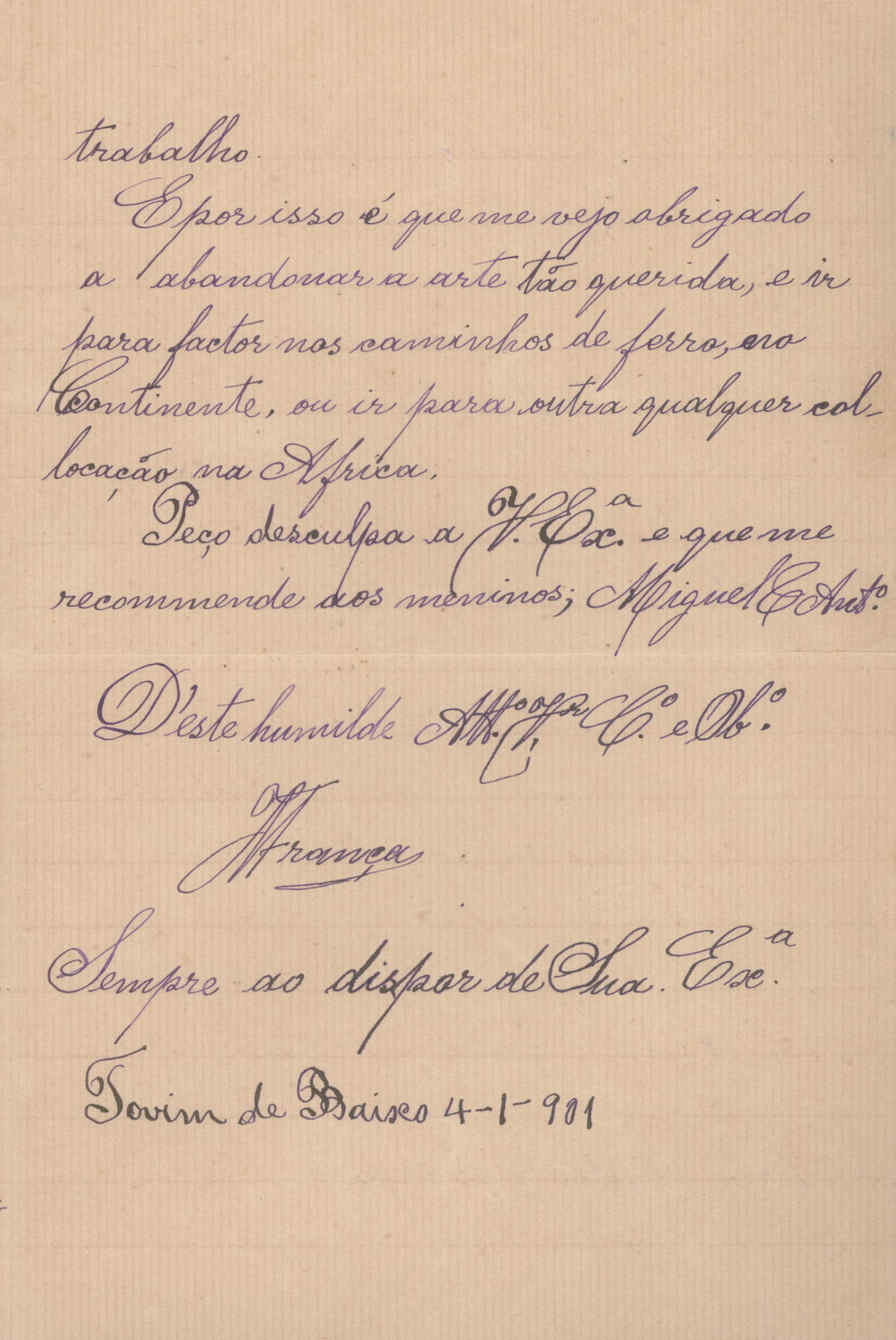 trabalho.
E por isso é que me vejo obrigado
a abandonar a arte tão querida, e ir
para factor nos caminhos de ferro, no
Continente, ou ir para outra qualquer col-
locação na Africa.
Peço desculpa a V. Ex.ª e que me
recommende aos meninos; Miguel E Ant.º
D'este humilde Att.º V.ºr C.º e Ob.º
França
Sempre ao dispor de Sua. Ex.ª
Tovim de Baixo 4-1-901